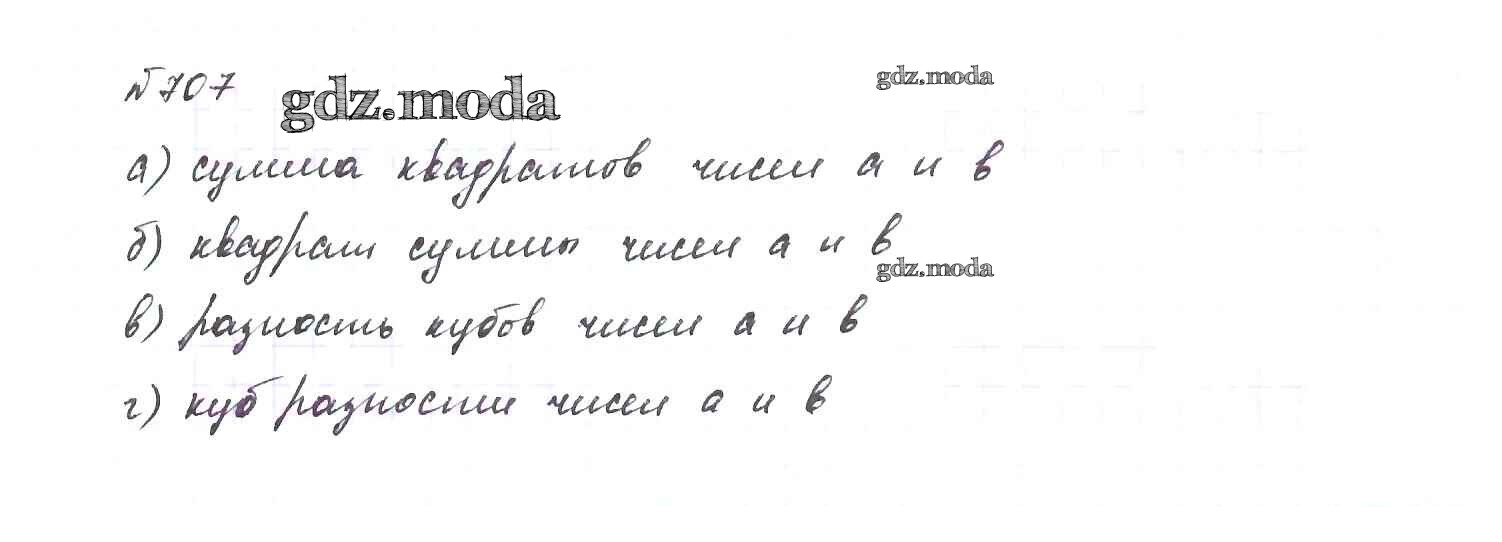 №707 gdz.moda gdz.moda
а) сумма квадратов чисел а и в
б) квадрат суммы чисел а и в
gdz.moda
в) разность кубов чисел а и в
г) куб разности чисел а и в